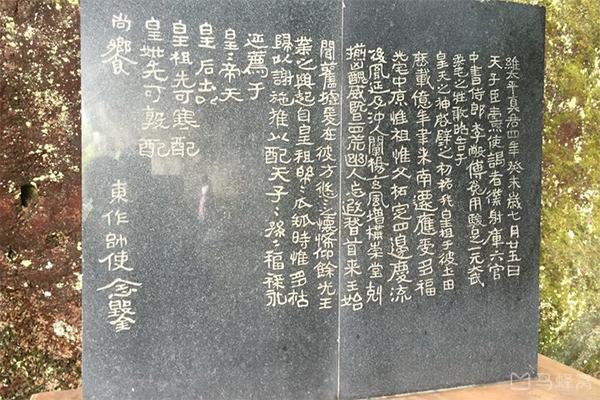 維太平真君四年癸未歲七月廿五日
天子臣燾使謁者僕射庫六官
中書侍郎李敞傅㝹用駿足一元大武
柔毛之牲敢昭告于
皇天之神啟辟之初祐我皇祖于彼土田
歷載億年聿來南遷應受多福
光宅中原惟祖惟父拓定四邊慶流
後胤延及沖人闡揚玄風增構崇堂剋
揃凶醜威暨四荒幽人忘遐稽首來王始
聞舊墟爰在彼方悠〻之懷希仰餘光王
業之興起自皇祖綿〻瓜瓞時惟多祜
歸以謝施推以配天子〻孫〻福祿永
延薦于
皇〻帝天
皇 后土以
皇祖先可寒配
皇妣先可敦配
尚饗 東作帥使念鑿
马蜂窝